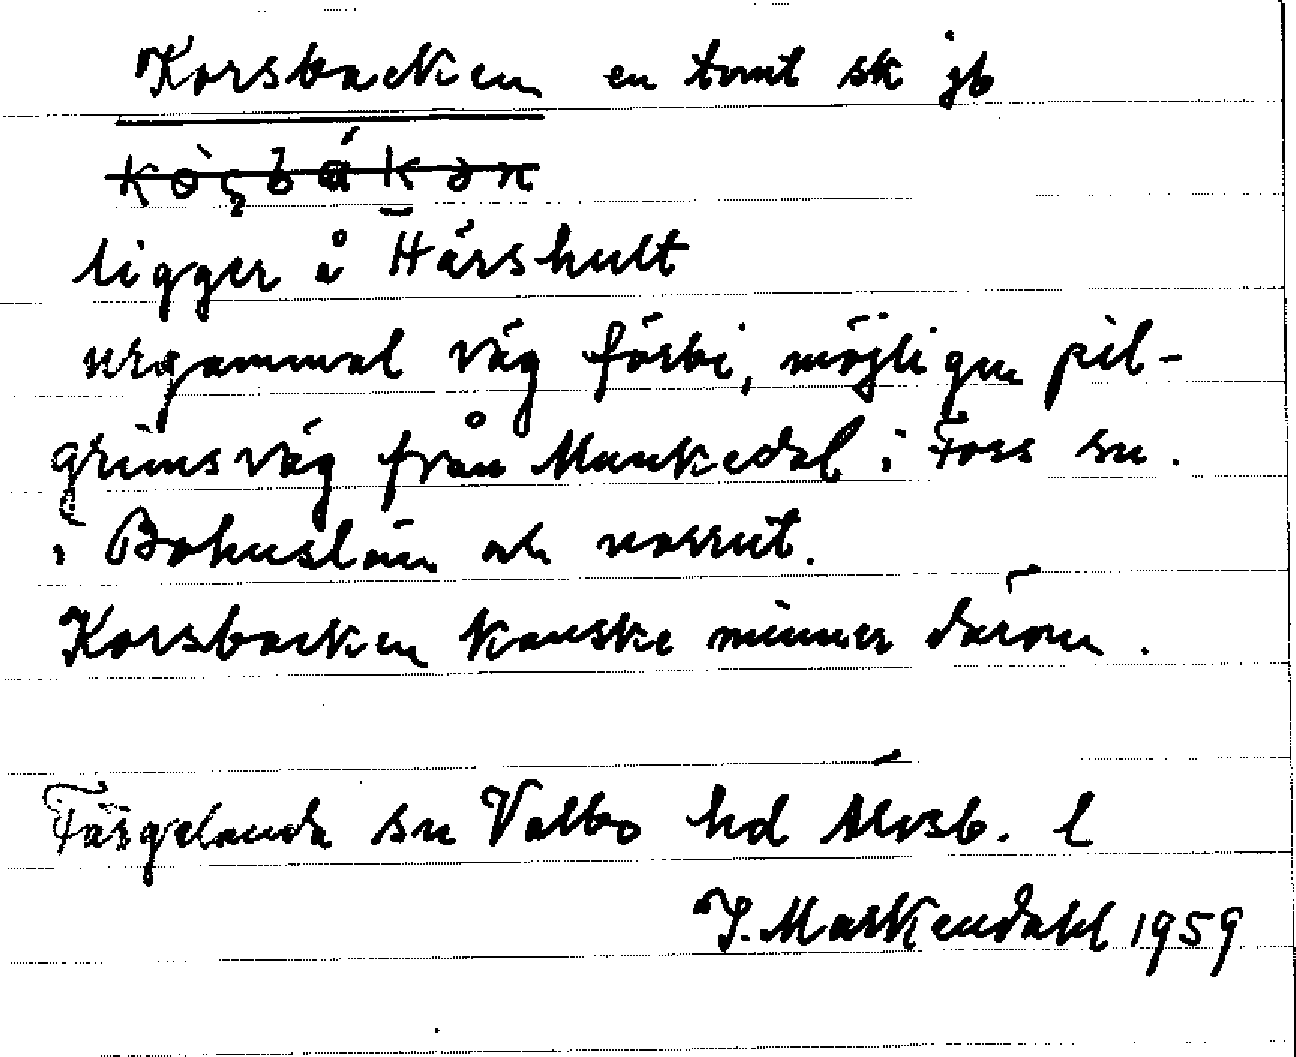 Korsbacken en tomt sk jb
ligger å Härshult
urgammal väg förbi, möjligen pil-
grimsväg från Munkedal i Foss sn.
i Bohuslän och norrut.
Korsbacken kanske minner därom.
Färgelanda sn Valbo hd Älvsb. l
J. Markendahl 1959